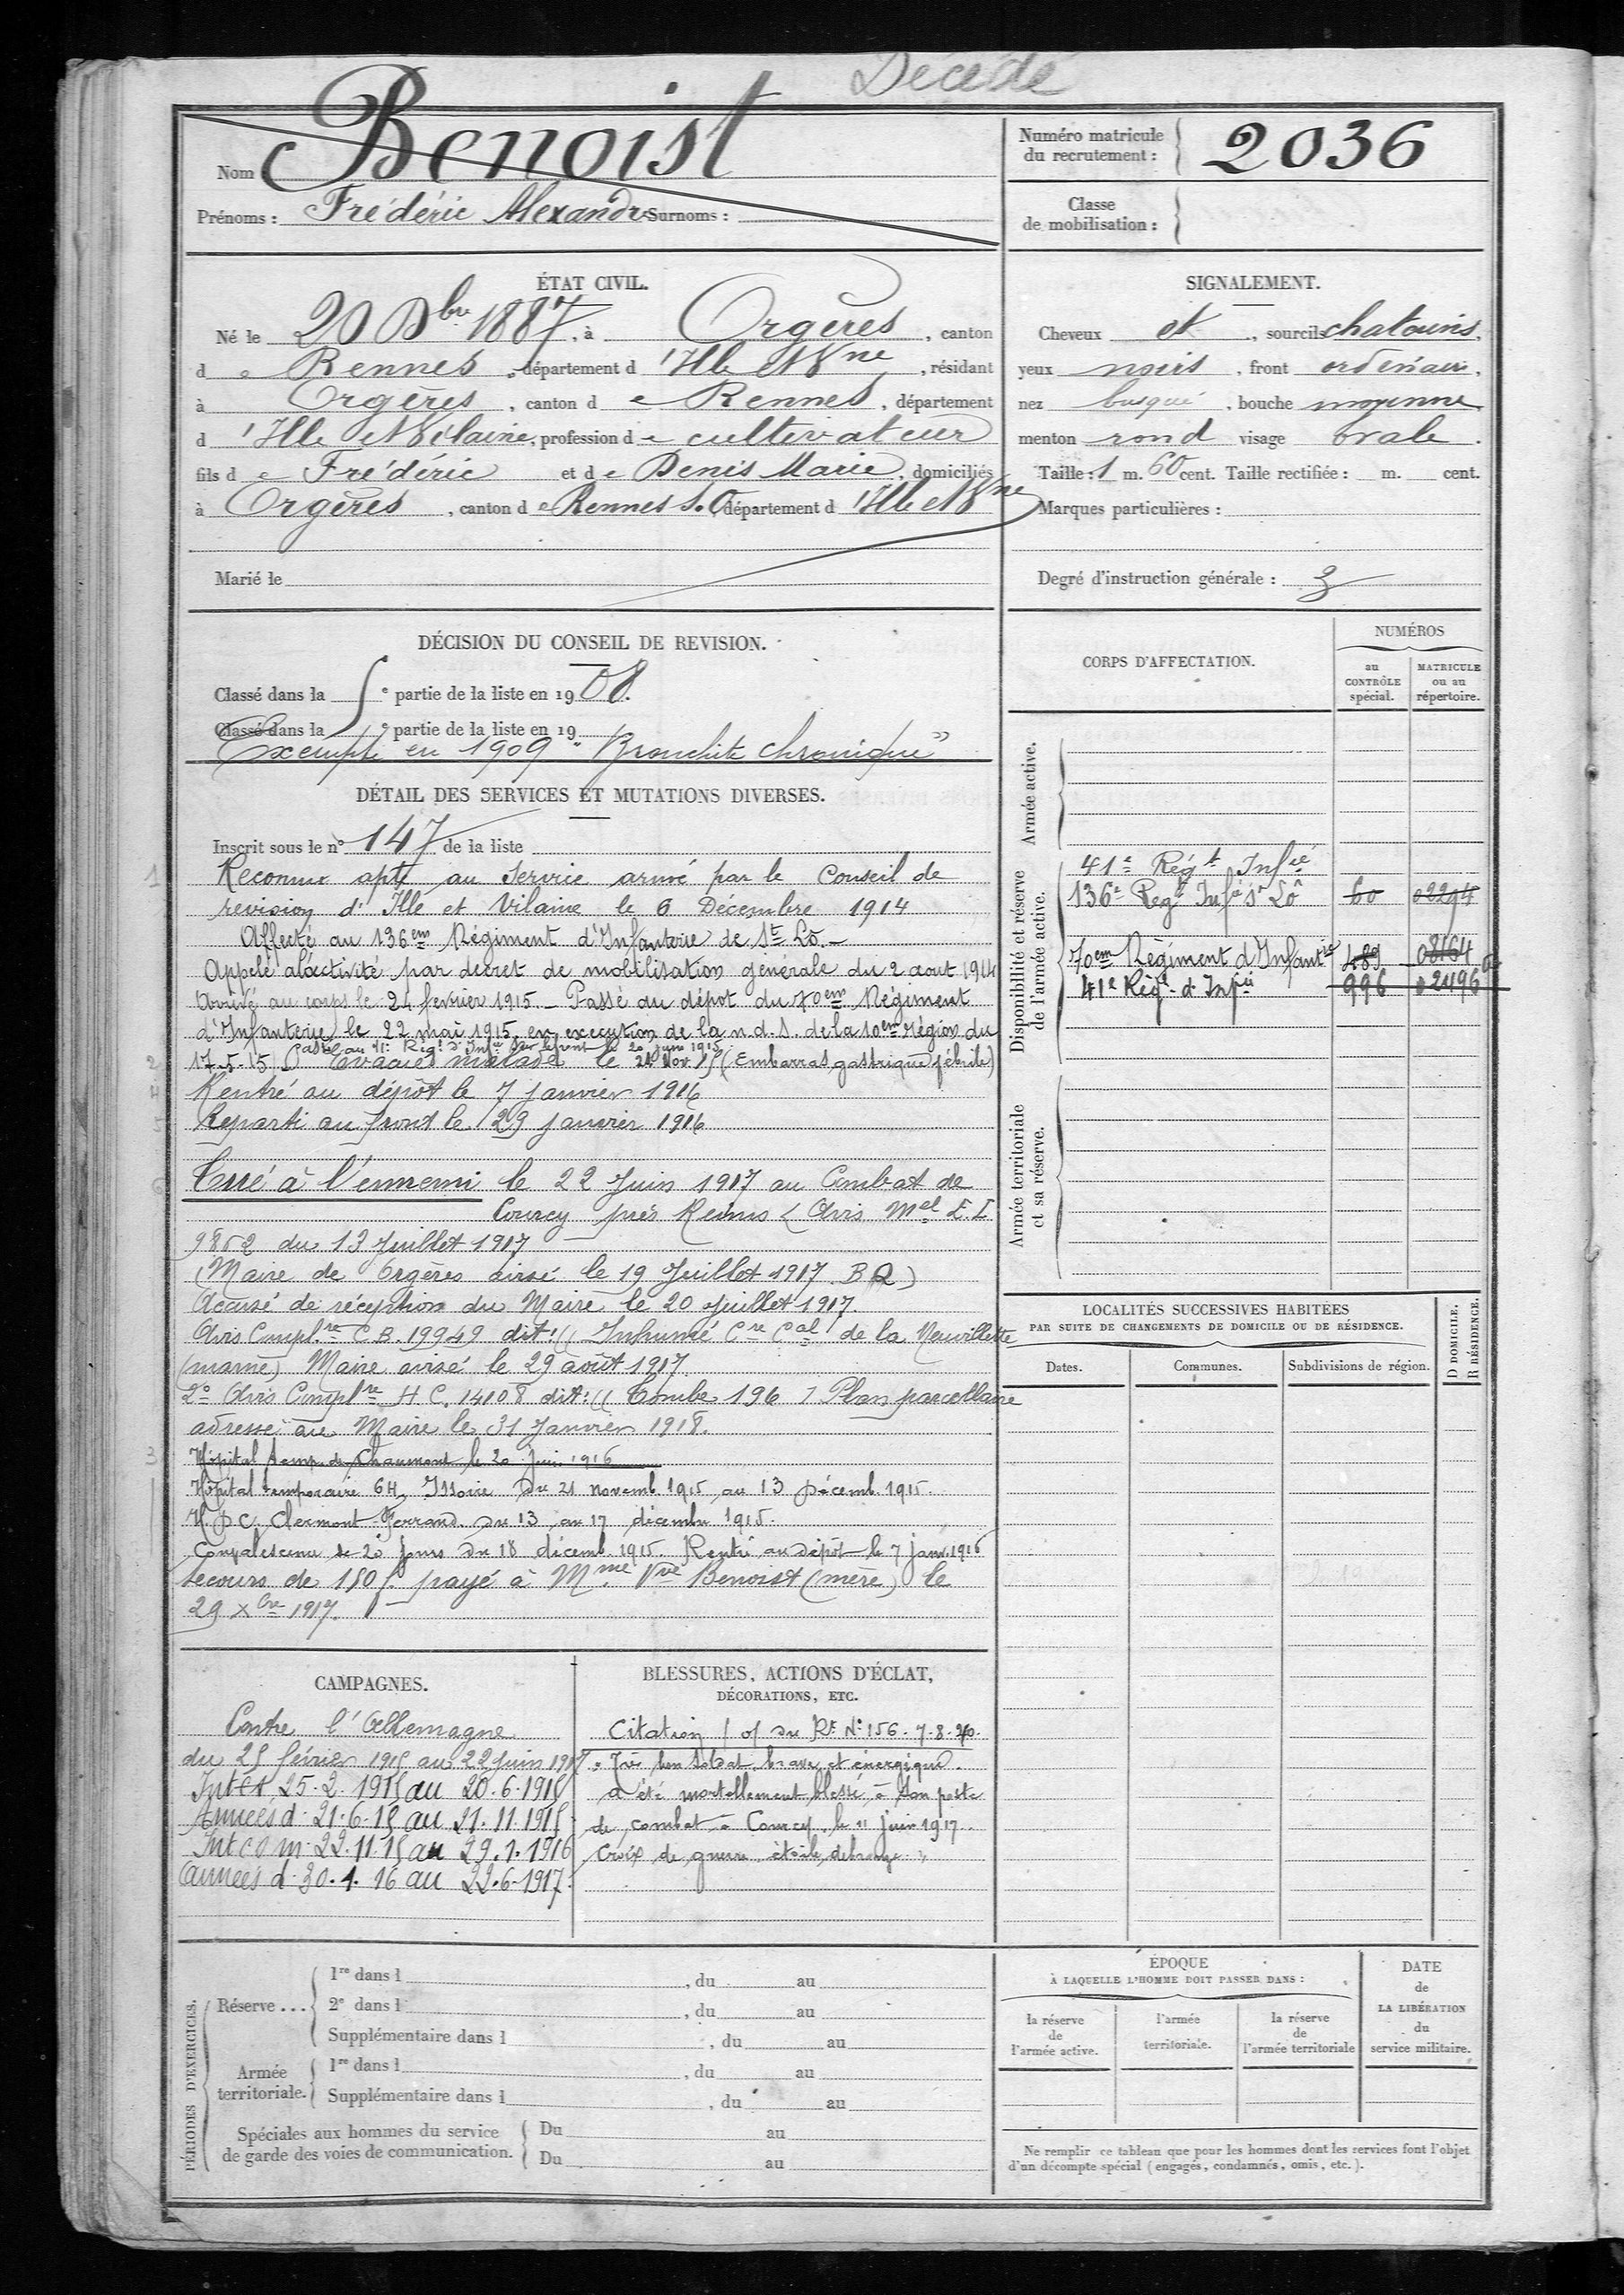 Décédé
Nom Benoist
Prénoms : Frédéric Alexandre Surnoms :
Numéro matricule du recrutement : 2036
Classe de mobilisation :
ÉTAT CIVIL.
Né le 20 Xbre 1887, à Orgères, canton
de Rennes, département d'Ille et Vne, résidant
à Orgères, canton de Rennes, département
d'Ille et Vilaine, profession de cultivateur
fils de Frédéric et de Denis Marie, domiciliés
à Orgères, canton de Rennes S.O, département d'Ille et Vne
Marié le
SIGNALEMENT.
Cheveux et, sourcils chatains,
yeux noirs, front ordinaire,
nez busqué, bouche moyenne
menton rond visage ovale.
Taille : 1 m. 60 cent. Taille rectifiée : m. cent.
Marques particulières :
Degré d'instruction générale : 3
DÉCISION DU CONSEIL DE REVISION.
Classé dans la e partie de la liste en 1908.
Classé dans la e partie de la liste en 19
Exempté en 1909 "Bronchite chronique"
DÉTAIL DES SERVICES ET MUTATIONS DIVERSES.
Inscrit sous le n° 147 de la liste
1 Reconnu apte au service armé par le Conseil de
revision d'Ille et Vilaine le 6 Décembre 1914
Affecté au 136em Régiment d'Infanterie de St Lô.-
Appelé à l'activité par décret de mobilisation générale du 2 aout 1914
Arrivé au corps le 24 fevrier 1915 – Passé au dépot du 70em Régiment
d'Infanterie le 22 mai 1915 en execution de la n.d.s. de la 10em région du
Passé au 41e Régt d'Infie sur le front le 20 juin 1915
2 17-5-15 Evacué malade le 21 Nov. 15 (Embarras gastrique fébrile)
4 Rentré au dépôt le 7 janvier 1916
5 Reparti au front le 29 janvier 1916
6 Tué à l'ennemi le 22 Juin 1917 au Combat de
Courcy près Reims (Avis Mel E.I
9852 du 13 Juillet 1917
(Maire de Orgères avisé le 19 Juillet 1917. BQ)
Accusé de réception du Maire le 20 juillet 1917.
Avis Complre C.B. 19949 dit: (( Inhumé Cre Cal de la Neuvillette
(marne) Maire avisé le 29 août 1917
2° Avis Complre H C. 14108 dit: (( Tombe 196 1 Plan parcellaire
adressé au Maire le 31 Janvier 1918.
3 Hôpital temp. de Chaumont le 20 Juin 1916
Hôpital temporaire 64, Issoire Du 21 novemb. 1915, au 13 Décemb. 1915.
H. D C. Clermont-Ferrand. Du 13 au 17 décembre 1915.
Convalescence de 20 jours Du 18 décemb. 1915. Rentré au dépôt le 7 janv. 1916
Secours de 150f. payé à Mme Vve Benoist (mère) le
29 Xbre 1917.
CORPS D'AFFECTATION.
NUMÉROS
au CONTRÔLE spécial.
MATRICULE ou au répertoire.
Armée active.
Disponibilité et réserve de l'armée active.
41e Régt Infie
136e Regt Infie St Lô 60 02294
70em Régiment d'Infantie 489 08164
41e Régt d'Infie 996 02496
Armée territoriale et sa réserve.
LOCALITÉS SUCCESSIVES HABITÉES
PAR SUITE DE CHANGEMENTS DE DOMICILE OU DE RÉSIDENCE.
D DOMICILE. R RÉSIDENCE.
Dates. Communes. Subdivisions de région.
CAMPAGNES.
Contre l'Allemagne
du 25 février 1915 au 22 juin 1917
Intér 25.2.1915 au 20.6.1915
Armées d. 21.6.15 au 21.11.1915
Int c o m. 22.11.15 au 29.1.1916
Armées d. 30.1.16 au 22.6.1917.
BLESSURES, ACTIONS D'ÉCLAT,
DÉCORATIONS, ETC.
Citation Du Rt N° 156. 7.8.20.
"Très bon Soldat, brave et énergique.
a été mortellement blessé, à son poste
de combat à Courcy, le 11 juin 1917.
Croix de guerre étoile de bronze."
PÉRIODES D'EXERCICES.
Réserve...
1re dans l , du au
2e dans l , du au
Supplémentaire dans l , du au
Armée territoriale.
1re dans l , du au
Supplémentaire dans l , du au
Spéciales aux hommes du service de garde des voies de communication.
Du au
Du au
ÉPOQUE
À LAQUELLE L'HOMME DOIT PASSER DANS :
la réserve de l'armée active.
l'armée territoriale.
la réserve de l'armée territoriale
DATE de LA LIBÉRATION du service militaire.
Ne remplir ce tableau que pour les hommes dont les services font l'objet
d'un décompte spécial (engagés, condamnés, omis, etc.).